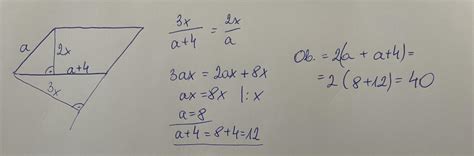 a
2x
a+4
3x
3x/(a+4) = 2x/a
3ax = 2ax + 8x
ax = 8x |: x
a = 8
a+4 = 8+4 = 12
Ob. = 2(a + a+4) =
= 2(8+12) = 40